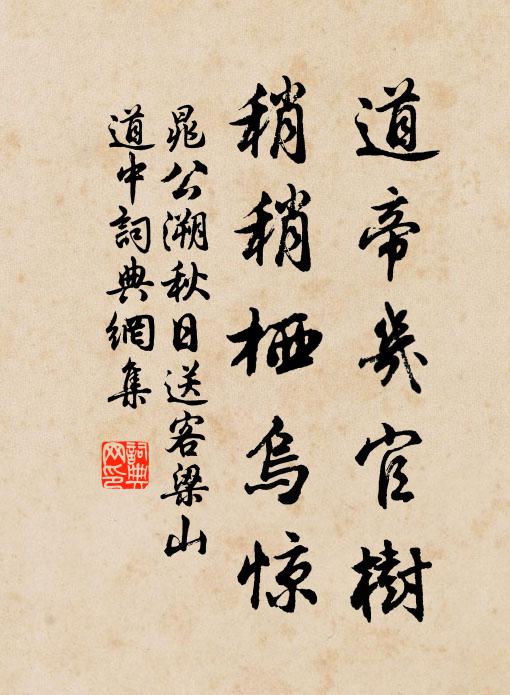 道帝几官樹
稍稍栖烏惊
晁公溯秋日送客梁山
道中詞典網集
詞典
网印